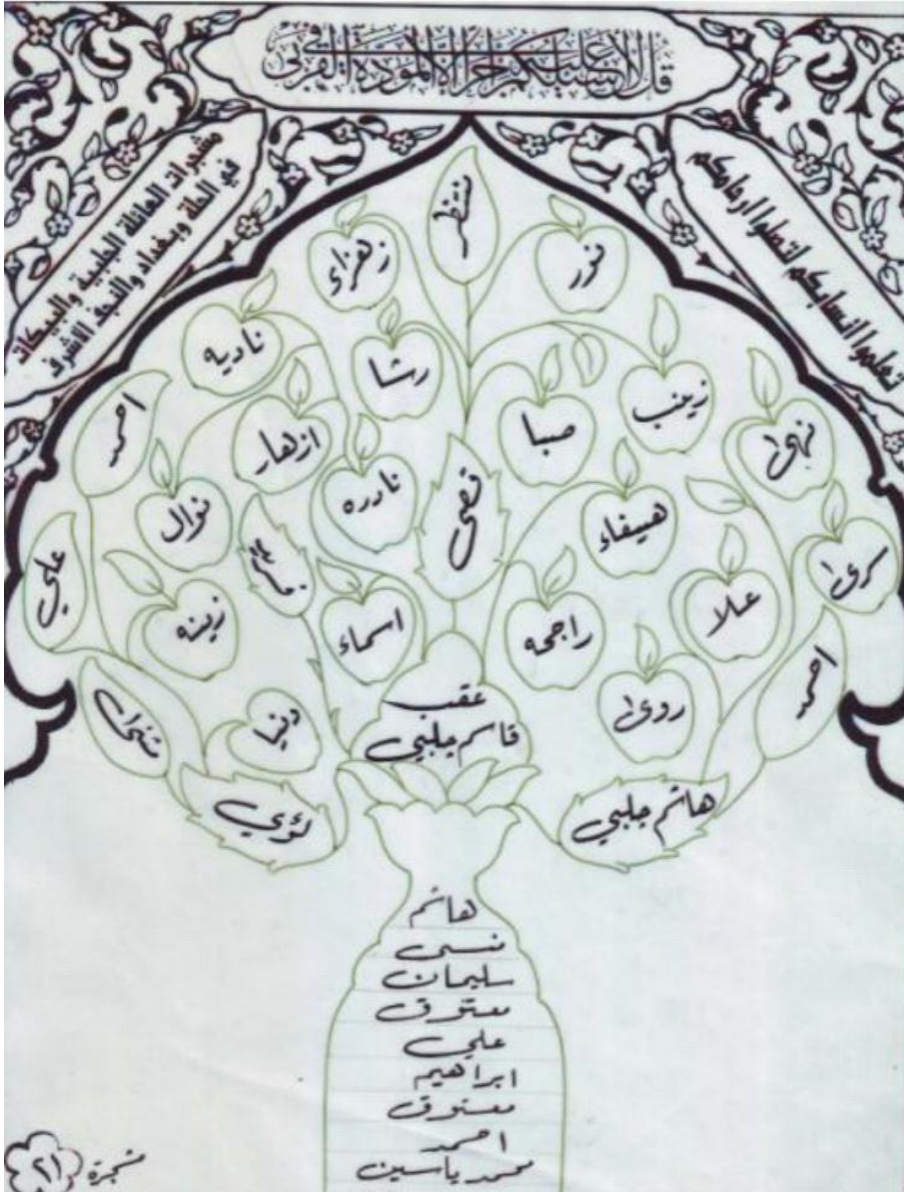 قل لا أسئلكم عليه أجرا إلا المودة في القربى
تعلموا انسابكم لتصلوا ارحامكم
مشجرات العائلة الجلبية والبيكات
في الحلة وبغداد والنجف الاشرف
منتظر
نور
زهراء
ناديه
رشا
زينب
صبا
نهى
احمد
ازهار
نادره
قصي
هيفاء
نوال
علي
سرى
علا
زينه
اسماء
راجحه
احمد
روى
دنيا
عقب
قاسم چلبي
لؤي
هاشم چلبي
هاشم
منسي
سليمان
معتوق
علي
ابراهيم
معتوق
احمد
محمد ياسين
مشجرة (٢١)